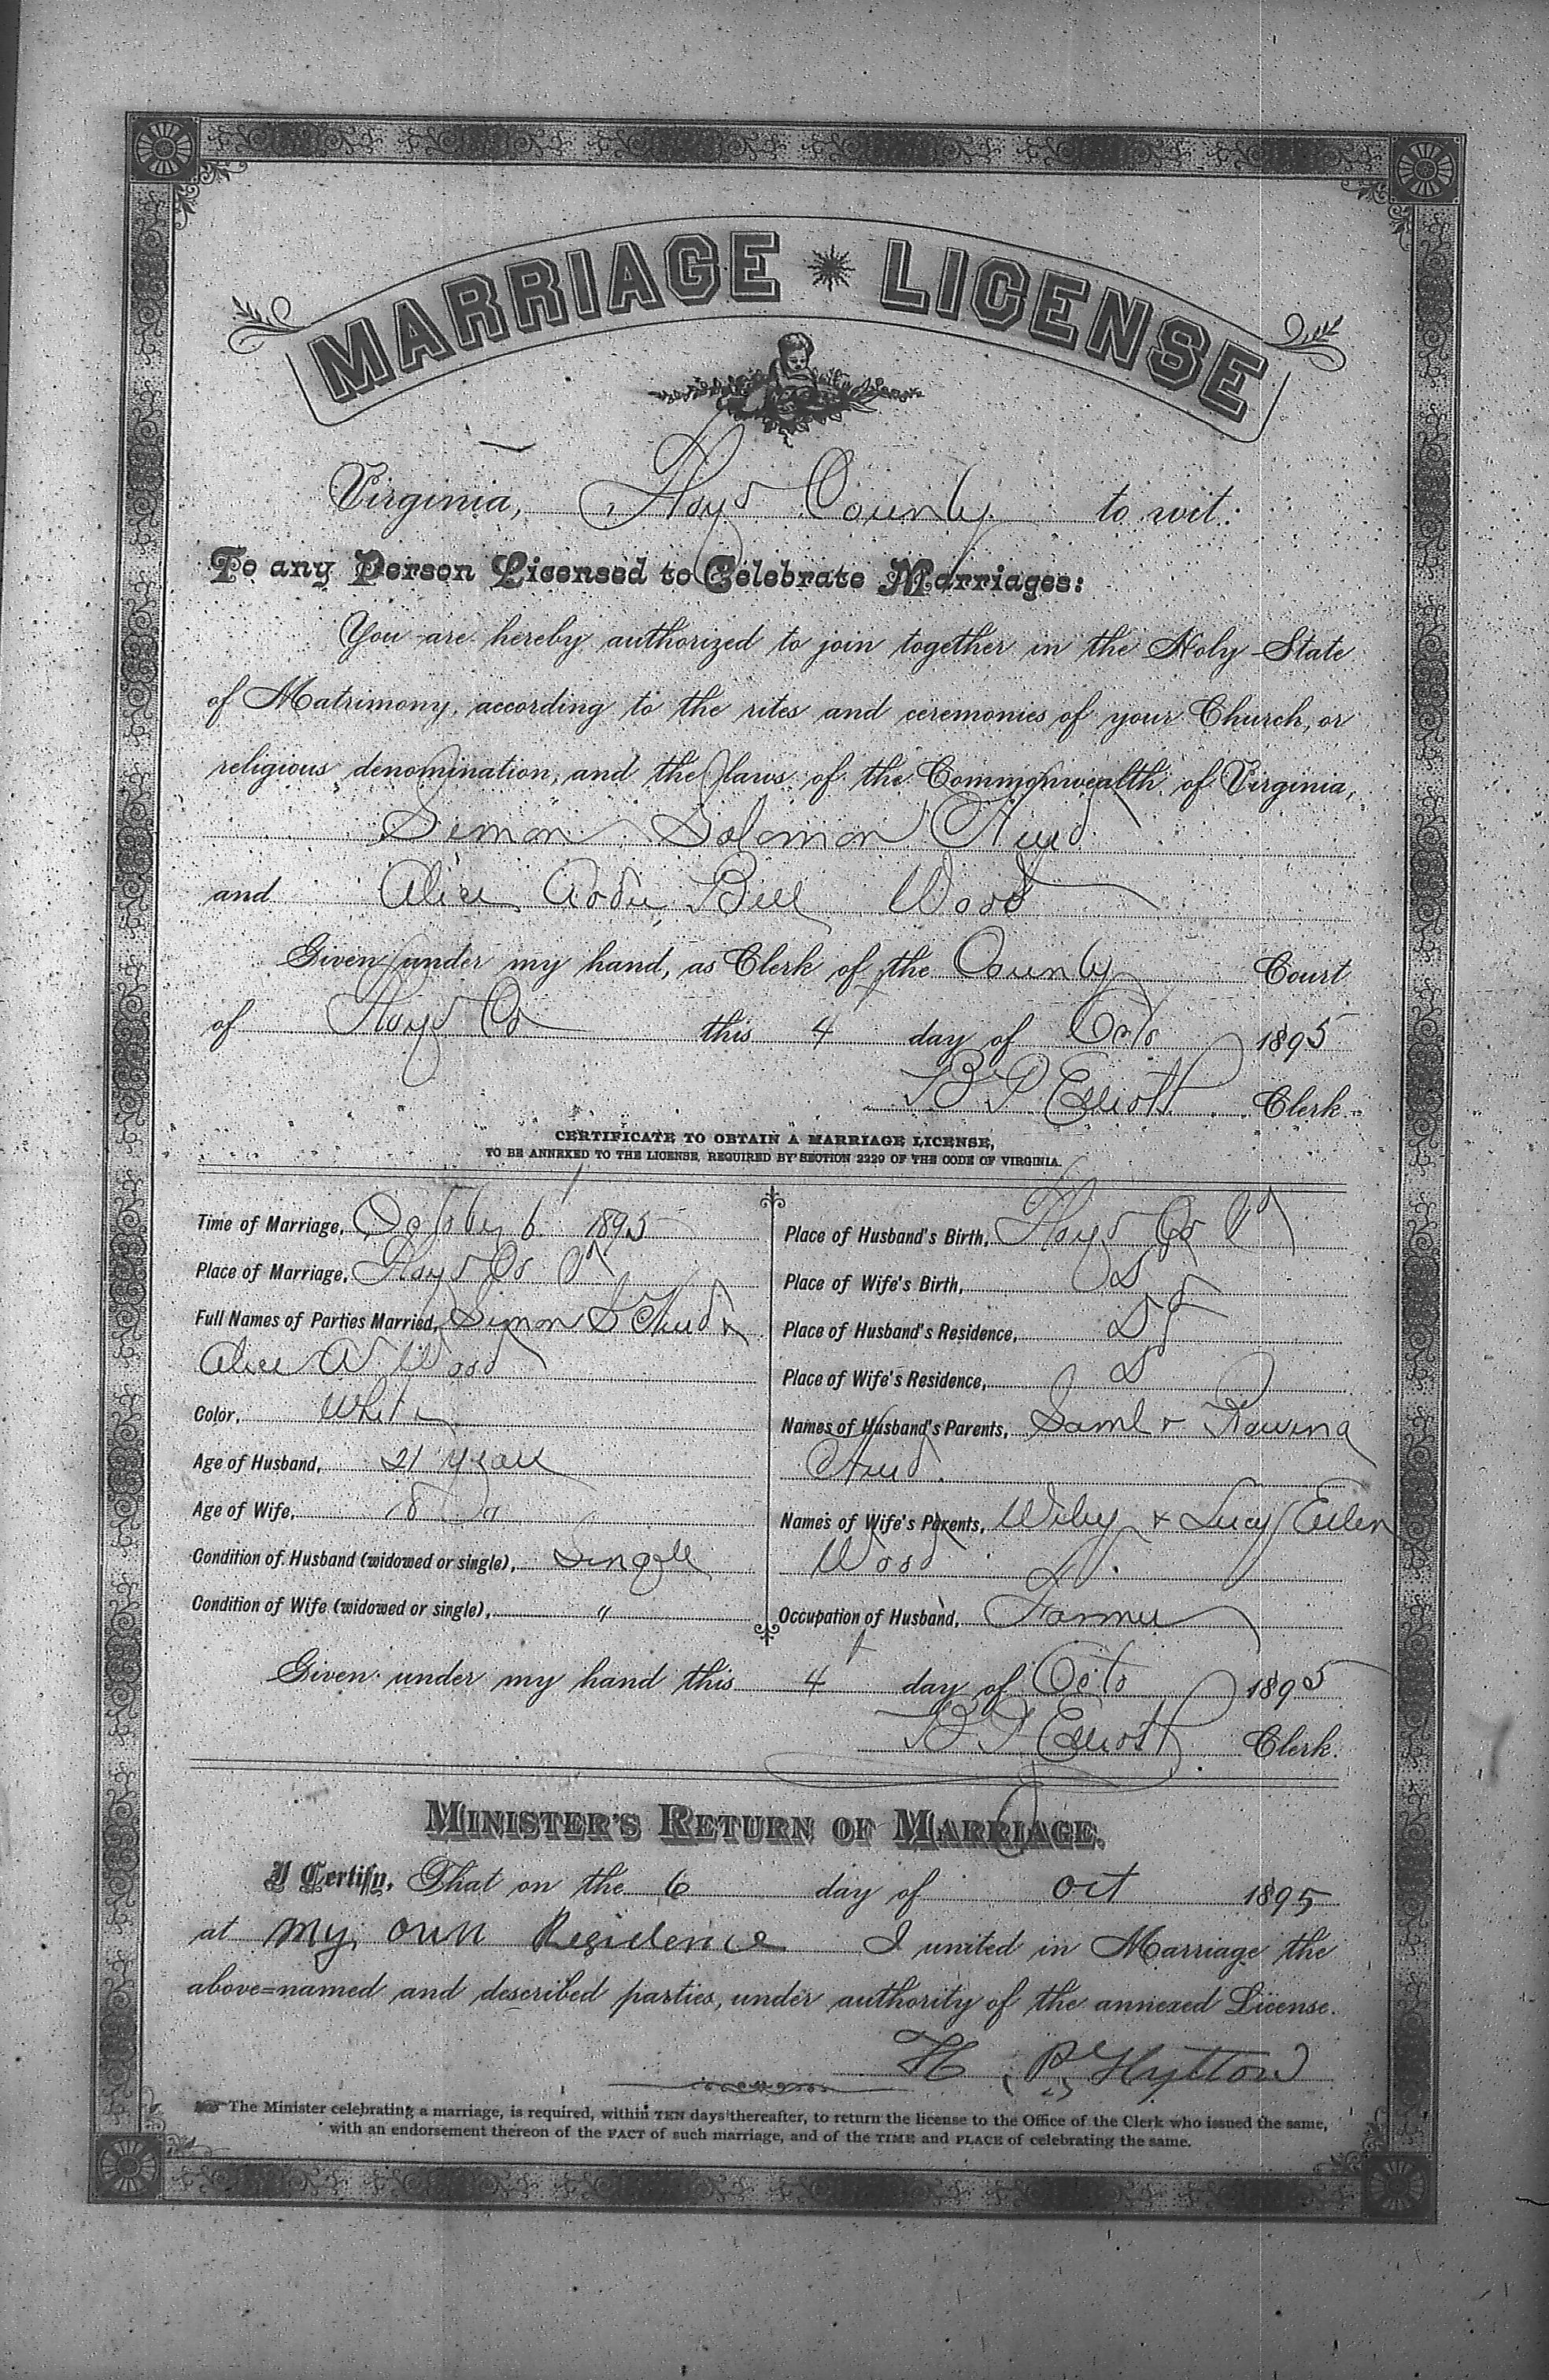 MARRIAGE LICENSE
Virginia, Floyd County to wit:
To any Person Licensed to Celebrate Marriages:
You are hereby authorized to join together in the Holy State
of Matrimony, according to the rites and ceremonies of your Church, or
religious denomination, and the laws of the Commonwealth of Virginia,
Simon Solomon
and Alice Bell Wood
Given under my hand, as Clerk of the County Court
of Floyd Co this 4 day of Octo 1895
B P Elliott Clerk.
CERTIFICATE TO OBTAIN A MARRIAGE LICENSE,
TO BE ANNEXED TO THE LICENSE, REQUIRED BY SECTION 2220 OF THE CODE OF VIRGINIA.
Time of Marriage, October 6 1895
Place of Marriage, Floyd Co Va
Full Names of Parties Married, Simon S &
Alice A Wood
Color, White
Age of Husband, 21 years
Age of Wife, 18 Do
Condition of Husband (widowed or single), Single
Condition of Wife (widowed or single), "
Place of Husband's Birth, Floyd Co Va
Place of Wife's Birth, Do
Place of Husband's Residence, Do
Place of Wife's Residence, Do
Names of Husband's Parents, Saml & Rowena
Names of Wife's Parents, Wiley & Lucy Ellen
Wood
Occupation of Husband, Farmer
Given under my hand this 4 day of Octo 1895
B P Elliott Clerk.
MINISTER'S RETURN OF MARRIAGE.
I Certify, That on the 6 day of oct 1895
at my own Residence I united in Marriage the
above-named and described parties, under authority of the annexed License.
H P Hylton
The Minister celebrating a marriage, is required, within TEN days thereafter, to return the license to the Office of the Clerk who issued the same,
with an endorsement thereon of the FACT of such marriage, and of the TIME and PLACE of celebrating the same.